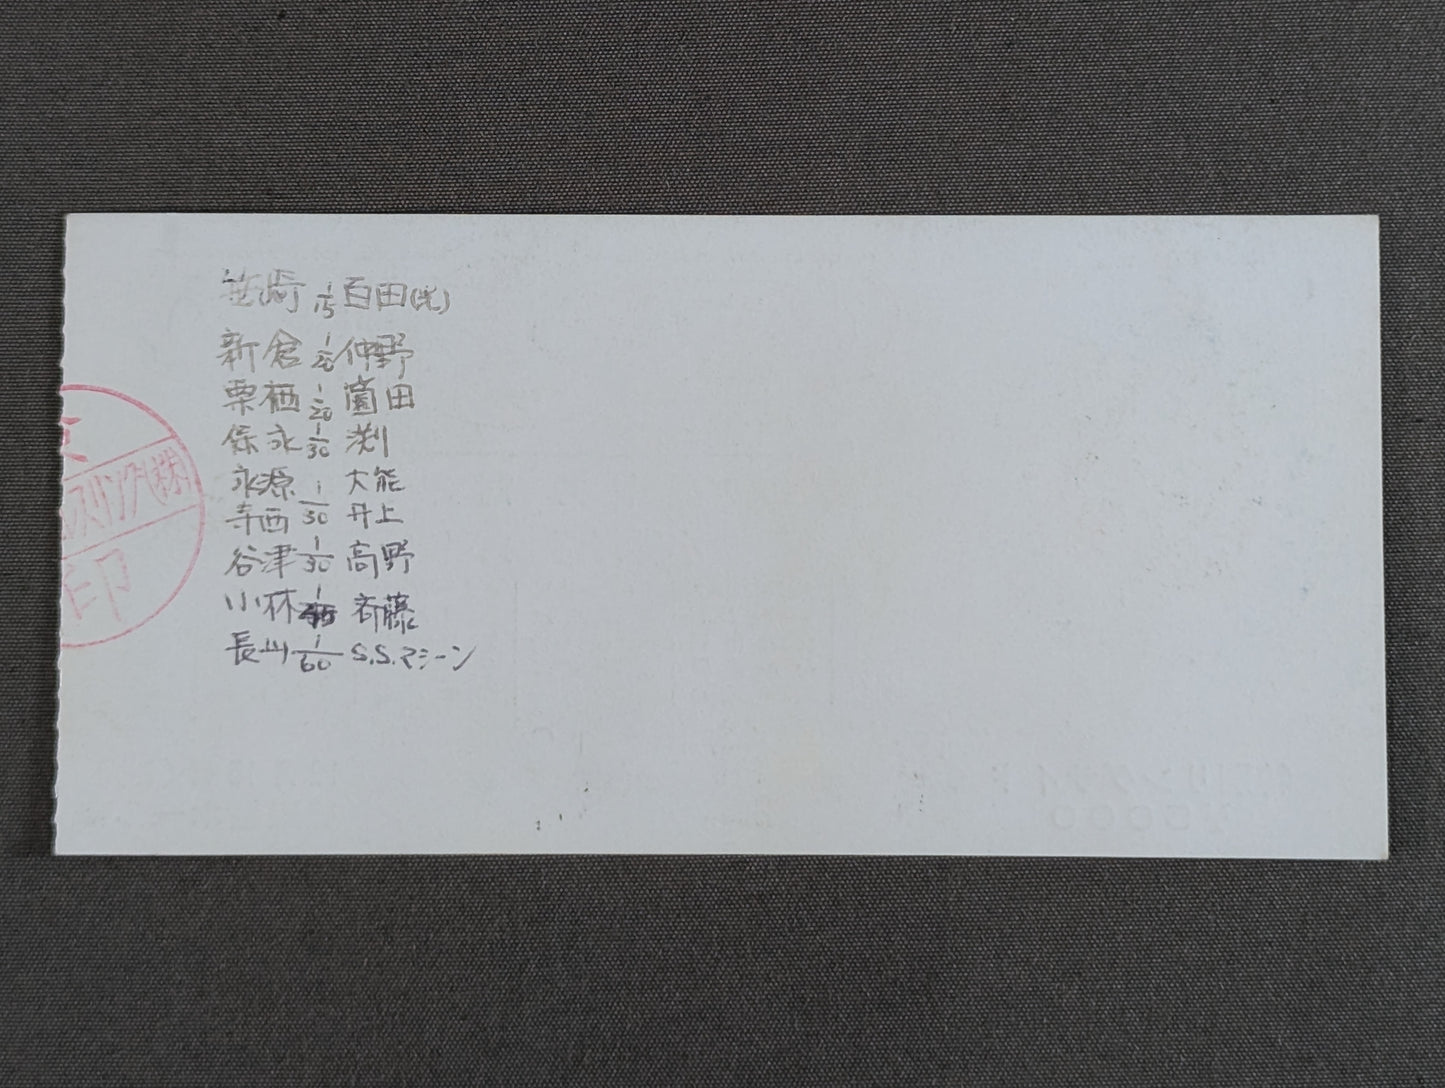 笹崎 1/15 百田(光)
新倉 1/20 仲野
栗栖 1/20 薗田
保永 1/30 渕
永源 1/ 大熊
寺西 /30 井上
谷津 1/30 高野
小林 1/ 斉藤
長山 1/60 S.S.マシーン
スリング(株)
印